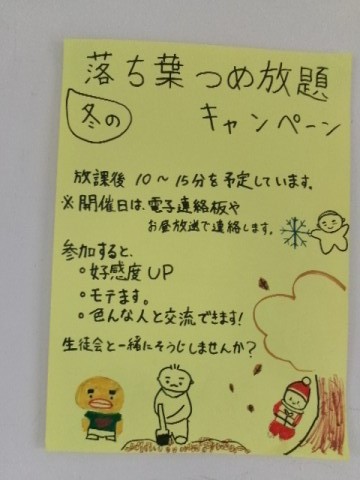 落ち葉つめ放題
冬の
キャンペーン
放課後 10～15分を予定しています。
※開催日は、電子連絡板や
お昼放送で連絡します。
参加すると、
○好感度UP
○モテます。
○色んな人と交流できます!
生徒会と一緒にそうじしませんか?